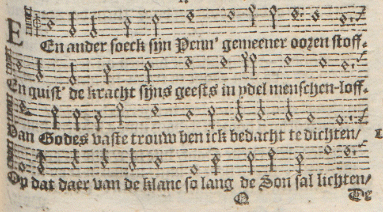 EEn ander soeck sijn Penn' gemeener ooren stoff.
En quist' de kracht sijns geests in ydel menschen-loff.
Van Godes vaste trouw ben ick bedacht te dichten/
Op dat daer van de klanc so lang de Son sal lichten/
O De